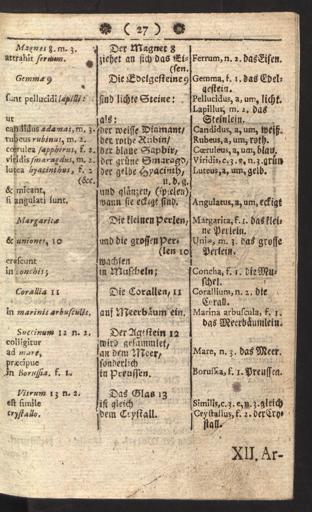 ( 27 )
Magnes 8. m. 3.
attrahit ferrum.
Gemmæ 9
sunt pellucidi lapilli:
ut
candidus adamas, m. 3.
rubeus rubinus, m. 2.
cœrulea sapphirus, f. 2.
viridis smaragdus, m. 2.
luteus hyacinthus, f. 2.
(&c.
& micant,
si angulati sunt.
Margaritæ
& uniones, 10
crescunt
in conchis;
Corallia 11
in marinis arbusculis.
Succinum 12 n. 2.
colligitur
ad mare,
præcipue
in Borussia, f. 1.
Vitrum 13 n. 2.
est simile
crystallo.
Der Magnet 8
ziehet an sich das Ei-
(sen.
Die Edelgesteine 9
sind lichte Steine:
als:
der weisse Diamant/
der rothe Rubin/
der blaue Saphir,
der grüne Smaragd,
der gelbe Hyacinth,
u. d. g.
und glänzen, (spielen)
wann sie eckigt sind.
Die kleinen Perlen,
und die grossen Per-
(len 10
wachsen
in Muscheln;
Die Corallen, 11
auf Meerbäum ein.
Der Agtstein 12
wird gesammlet,
an dem Meer,
sonderlich
in Preussen.
Das Glas 13
ist gleich
dem Crystall.
Ferrum, n. 2. das Eisen.
Gemma, f. 1. das Edel-
gestein.
Pellucidus, a, um, licht.
Lapillus, m. 2. das
Steinlein.
Candidus, a, um, weiß.
Rubeus, a, um, roth.
Cœruleus, a, um, blau.
Viridis, c. 3. e, n. 3. grün
Luteus, a, um, gelb.
Angulatus, a, um, eckigt
Margarita, f. 1. das klei-
ne Perlein.
Unio, m. 3. das grosse
Perlein.
Concha, f. 1. die Mu-
schel.
Corallium, n. 2. die
Corall.
Marina arbuscula, f. 1.
das Meerbäumlein.
Mare, n. 3. das Meer.
Borussia, f. 1. Preussen.
Similis, c. 3. e, n. 3. gleich
Crystallus, f. 2. der Cry-
stall.
XII. Ar-